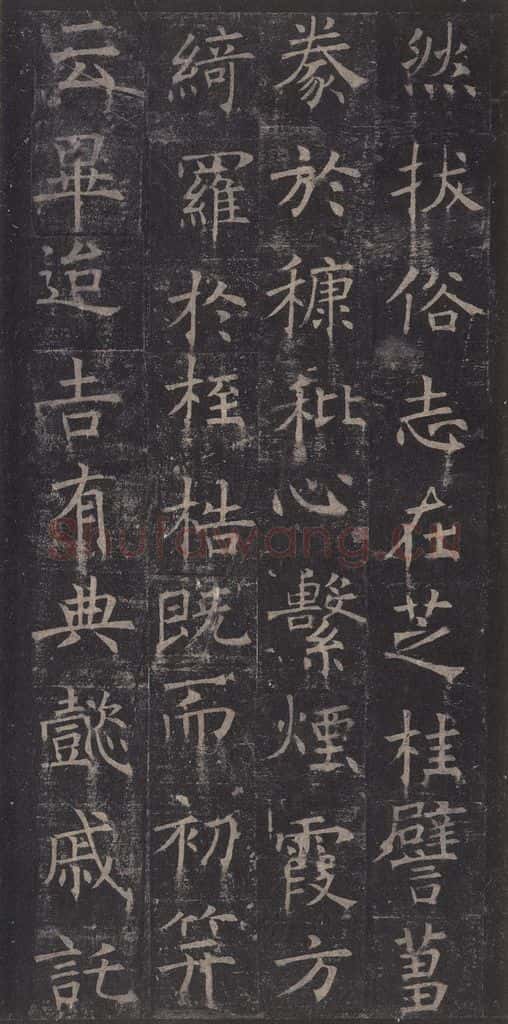 然拔俗志在芝桂譬蒭
豢於穅秕心繫煙霞方
綺羅於桎梏既而初笄
云畢迨吉有典懿戚託
Shufawang.cn